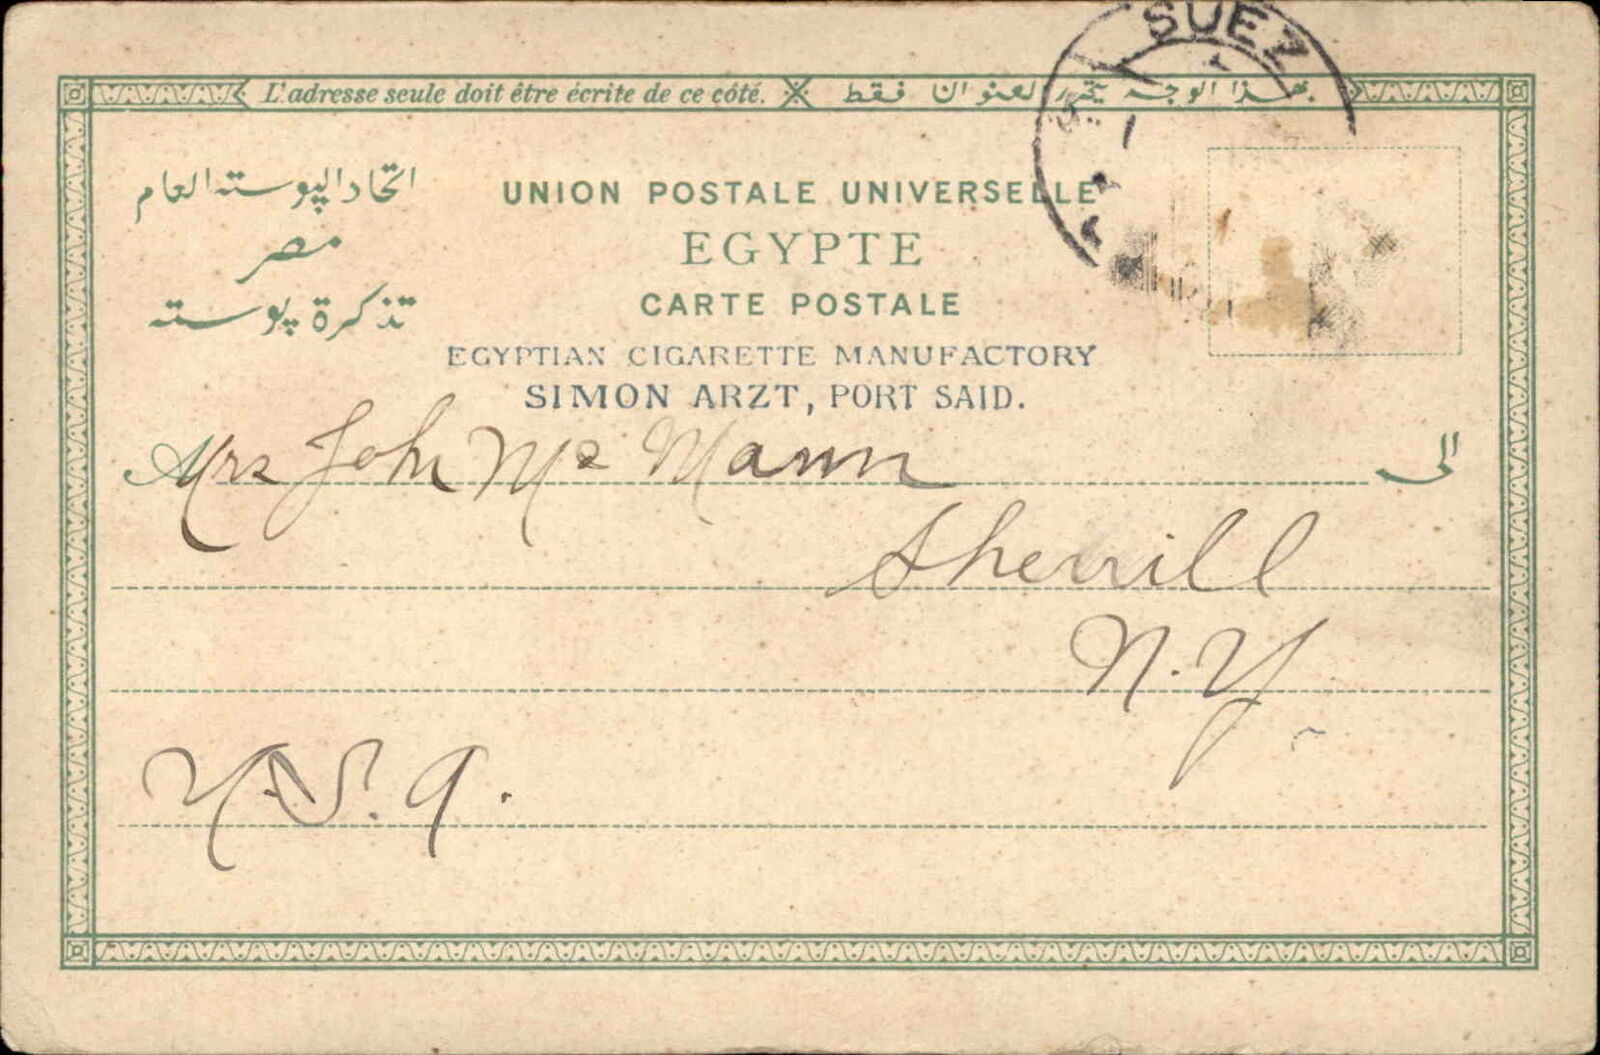 L'adresse seule doit être écrite de ce côté. بهذا الوجه يحرر العنوان فقط
SUEZ
اتحاد البوسته العام
UNION POSTALE UNIVERSELLE
مصر
EGYPTE
تذكرة بوسته
CARTE POSTALE
EGYPTIAN CIGARETTE MANUFACTORY
SIMON ARZT, PORT SAID.
Mrs John Mc Mann
الى
Sherrill
N.Y
U.S.A.